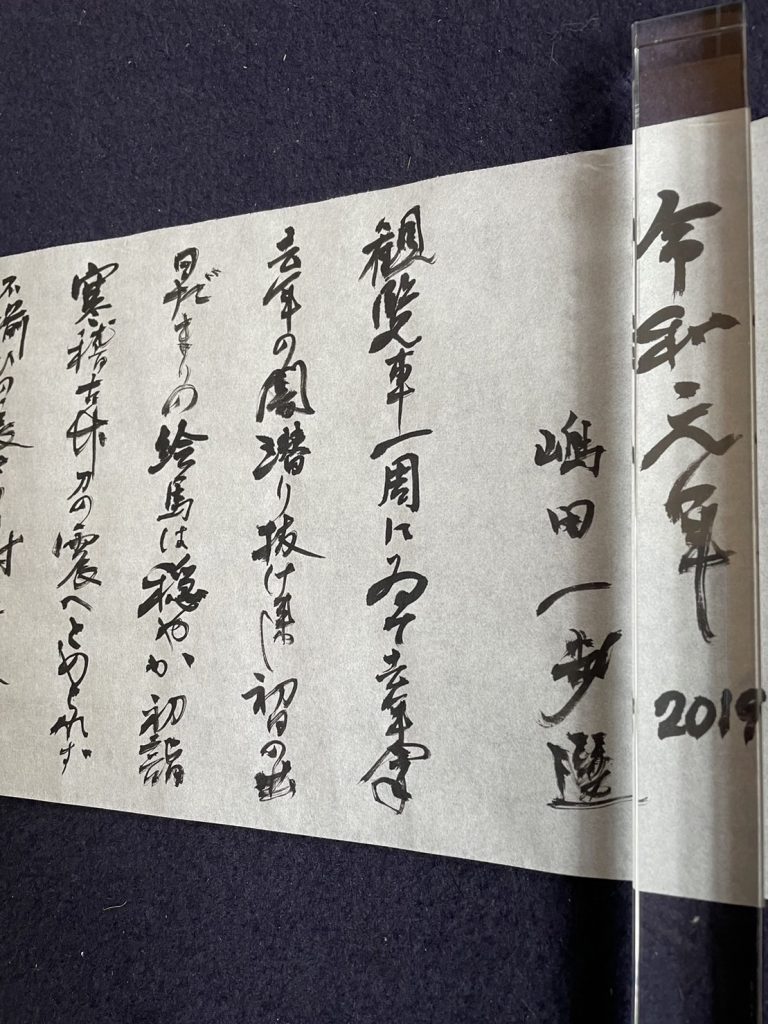 令和元年
2019
嶋田一歩選
観覧車一周にゐて去年今年
去年の闇潜り抜け来し初日の出
日だまりの絵馬は穏やか初詣
寒稽古竹刀の震へとめられず
不揃ひの